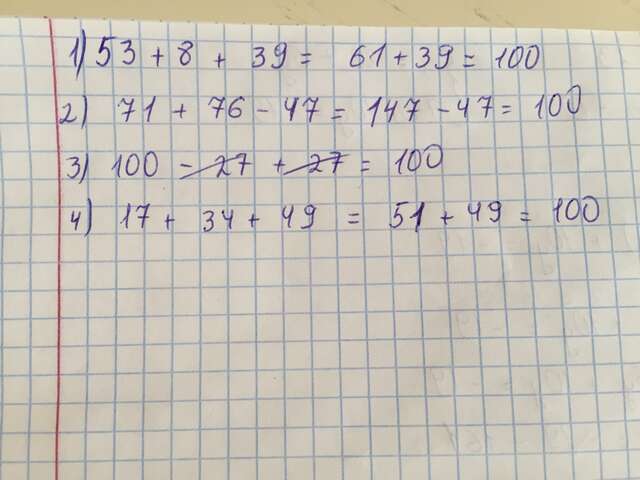 1) 53 + 8 + 39 = 61 + 39 = 100
2) 71 + 76 - 47 = 147 - 47 = 100
3) 100 - 27 + 27 = 100
4) 17 + 34 + 49 = 51 + 49 = 100